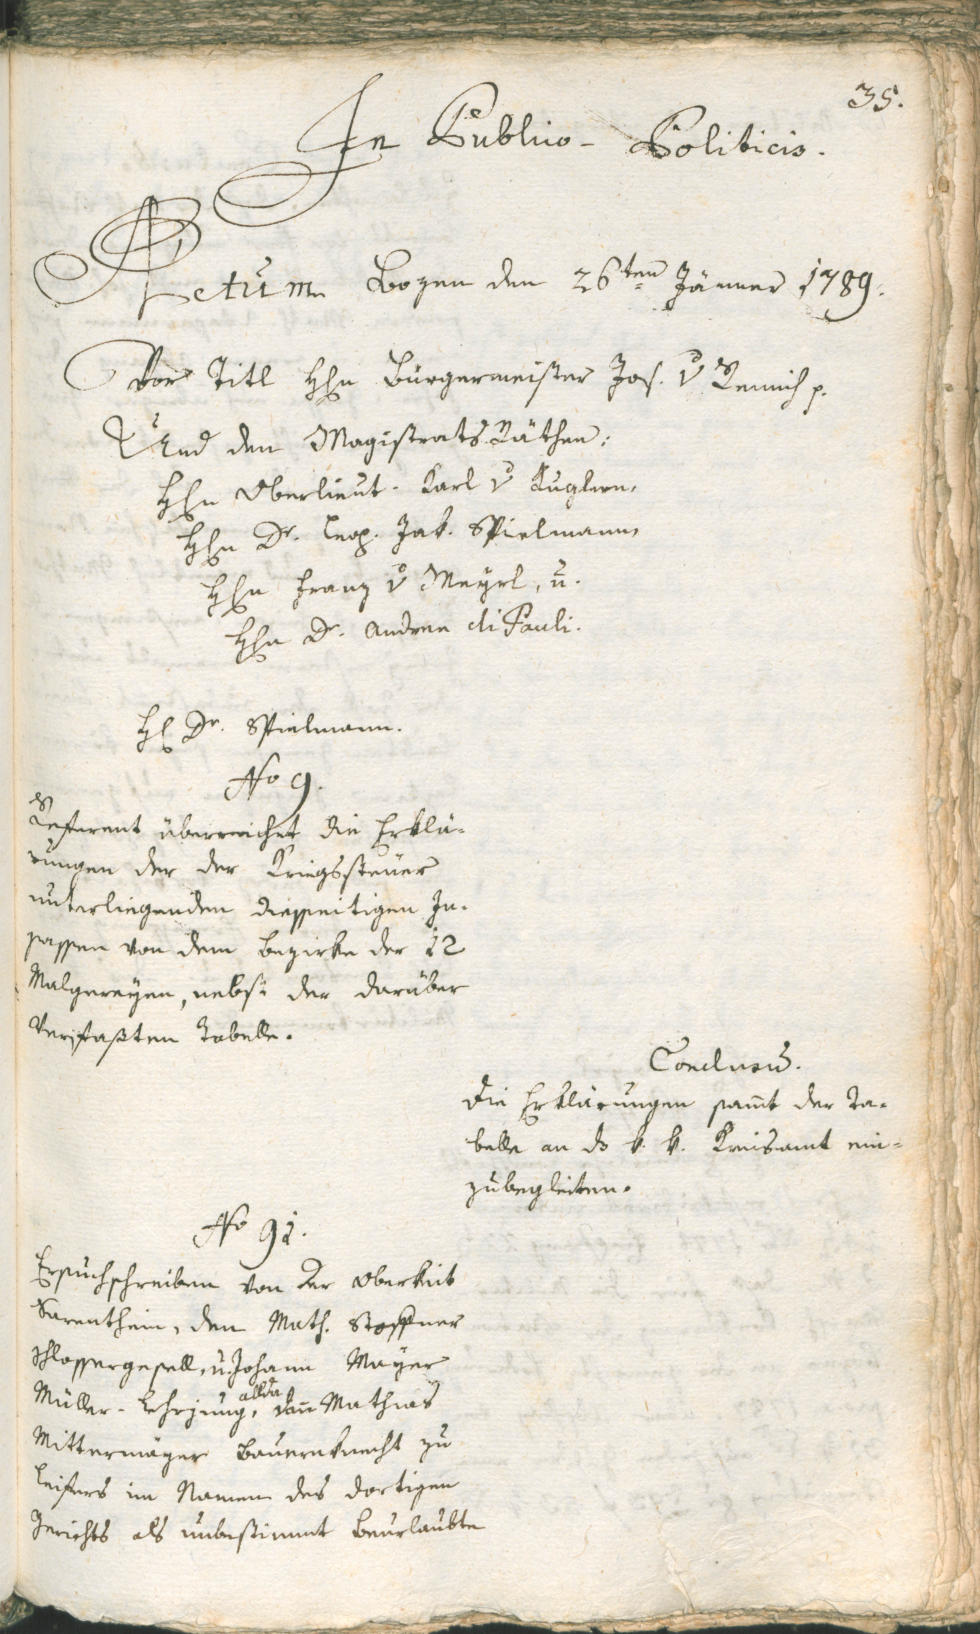 35.
In Publico-Politicis.
Actum Bozen den 26ten Jänner 1789.
Vor Titl Hhn Bürgermeister Jos. v Remich p.
Und den Magistrats Räthen:
Hhn Oberlieut. Karl v Kuglern,
Hhn Dr. Leop. Jak. Spielmann,
Hhn Franz v Meyrl, u.
Hhn Dr. Andreen di Pauli.
Hl Dr. Spielmann.
No 9.
Referent überreichet die Erklä-
rungen der der Kriegssteuer
unterliegenden diesseitigen In-
sassen von dem Bezirke der 12
Malgreyen, nebst der darüber
Verfaßten Tabelle.
Conclusu.
Die Erklärungen samt der Ta-
belle an ds k. k. Kreisamt ein-
zubegleiten.
No 91.
Ersuchschreiben von der Obrkeit
Sarenthein, den Math. Stoffner
Schlossergesell, u. Johann Mayer
Müller-Lehrjung, allda dann Mathias
Mittermayer Bauernknecht zu
Leifers im Namen des dortigen
Gerichts als unbestimmt Beurlaubte